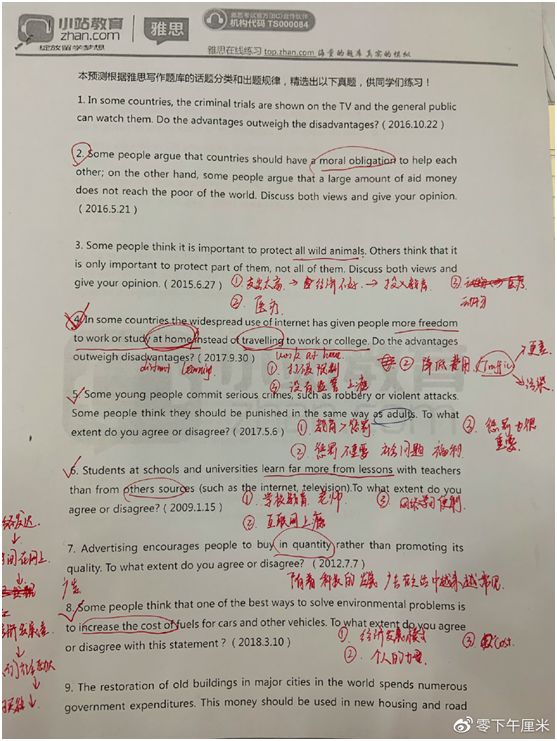 小站教育
zhan.com
绽放留学梦想
雅思
雅思考试官方(BC)合作伙伴
机构代码 TS000084
雅思在线练习 top.zhan.com 海量的题库 真实的模拟
本预测根据雅思写作题库的话题分类和出题规律，精选出以下真题，供同学们练习！
1. In some countries, the criminal trials are shown on the TV and the general public
can watch them. Do the advantages outweigh the disadvantages? (2016.10.22)
2. Some people argue that countries should have a moral obligation to help each
other; on the other hand, some people argue that a large amount of aid money
does not reach the poor of the world. Discuss both views and give your opinion.
(2016.5.21)
3. Some people think it is important to protect all wild animals. Others think that it
is only important to protect part of them, not all of them. Discuss both views and
give your opinion. (2015.6.27)
① 支出太高 →
→ 投入教育
③
医疗
② 医疗
4. In some countries the widespread use of internet has given people more freedom
to work or study at home instead of travelling to work or college. Do the advantages
outweigh disadvantages? (2017.9.30)
work at home
distant learning
①
② 降低费用
Traffic
污染
④ 没有监管 上瘾
5. Some young people commit serious crimes, such as robbery or violent attacks.
Some people think they should be punished in the same way as adults. To what
extent do you agree or disagree? (2017.5.6)
① 教育>惩罚
③ 惩罚也很
重要
② 惩罚不重要
6. Students at schools and universities learn far more from lessons with teachers
than from others sources (such as the internet, television).To what extent do you
agree or disagree? (2009.1.15)
① 学校教育 老师
③ 网络学习便利
② 互联网上瘾
7. Advertising encourages people to buy in quantity rather than promoting its
quality. To what extent do you agree or disagree? (2012.7.7)
随着科技的发展 广告在生活中越来越常见
广告
8. Some people think that one of the best ways to solve environmental problems is
to increase the cost of fuels for cars and other vehicles. To what extent do you agree
or disagree with this statement? (2018.3.10)
① 经济发展
③
cost
② 个人的
9. The restoration of old buildings in major cities in the world spends numerous
government expenditures. This money should be used in new housing and road
小站教育
零下午厘米